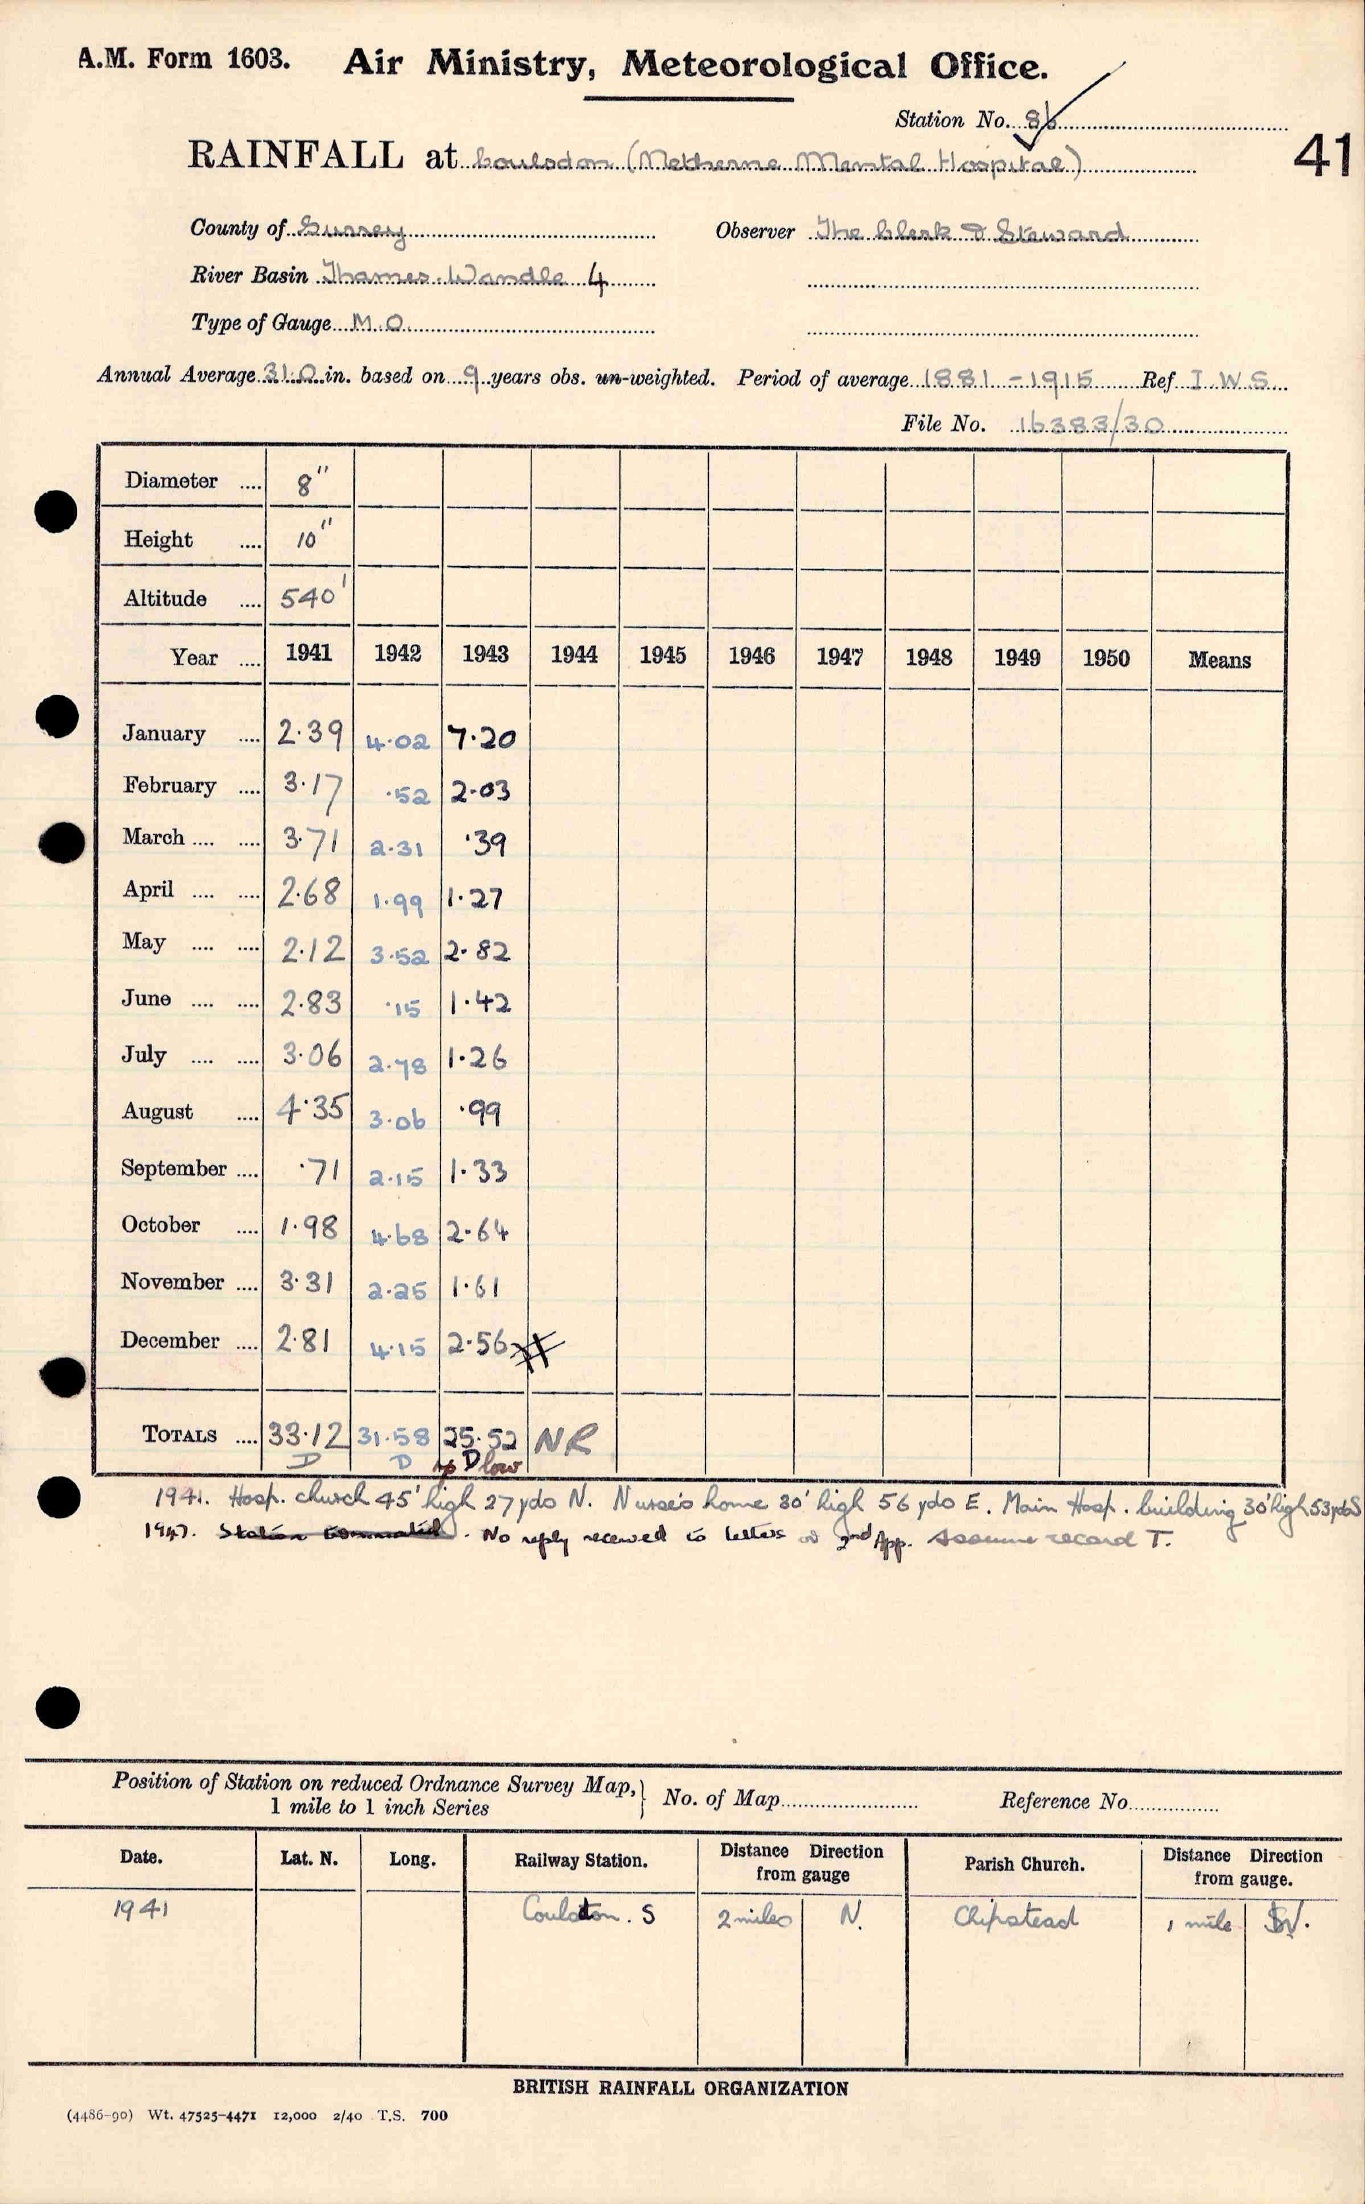 A.M. Form 1603. Air Ministry, Meteorological Office.
Station No. 86
41
RAINFALL at Coulsdon (Netherne Mental Hospital)
County of Surrey Observer The Clerk & Steward
River Basin Thames. Wandle 4
Type of Gauge M.O.
Annual Average 31.0 in. based on 9 years obs. un-weighted. Period of average 1881 - 1915 Ref I.W.S.
File No. 16383/30
Diameter .... 8"
Height .... 10"
Altitude .... 540'
Year .... 1941 1942 1943 1944 1945 1946 1947 1948 1949 1950 Means
January .... 2.39 4.02 7.20
February .... 3.17 .52 2.03
March .... .... 3.71 2.31 .39
April .... .... 2.68 1.99 1.27
May .... .... 2.12 3.52 2.82
June .... .... 2.83 .15 1.42
July .... .... 3.06 2.78 1.26
August .... 4.35 3.06 .99
September .... .71 2.15 1.33
October .... 1.98 4.68 2.64
November .... 3.31 2.25 1.61
December .... 2.81 4.15 2.56
TOTALS .... 33.12 31.58 25.52 NR
D D D low
1941. Hosp. church 45' high 27 yds N. Nurse's home 30' high 56 yds E. Main Hosp. building 30' high 53 yds S
1947. Station terminated. No reply received to letters or 2nd App. Assume record T.
Position of Station on reduced Ordnance Survey Map, } No. of Map Reference No.
1 mile to 1 inch Series
Date. Lat. N. Long. Railway Station. Distance Direction from gauge Parish Church. Distance Direction from gauge.
1941 Coulsdon. S 2 miles N. Chipstead 1 mile W.
BRITISH RAINFALL ORGANIZATION
(4486-90) Wt. 47525-4471 12,000 2/40 T.S. 700